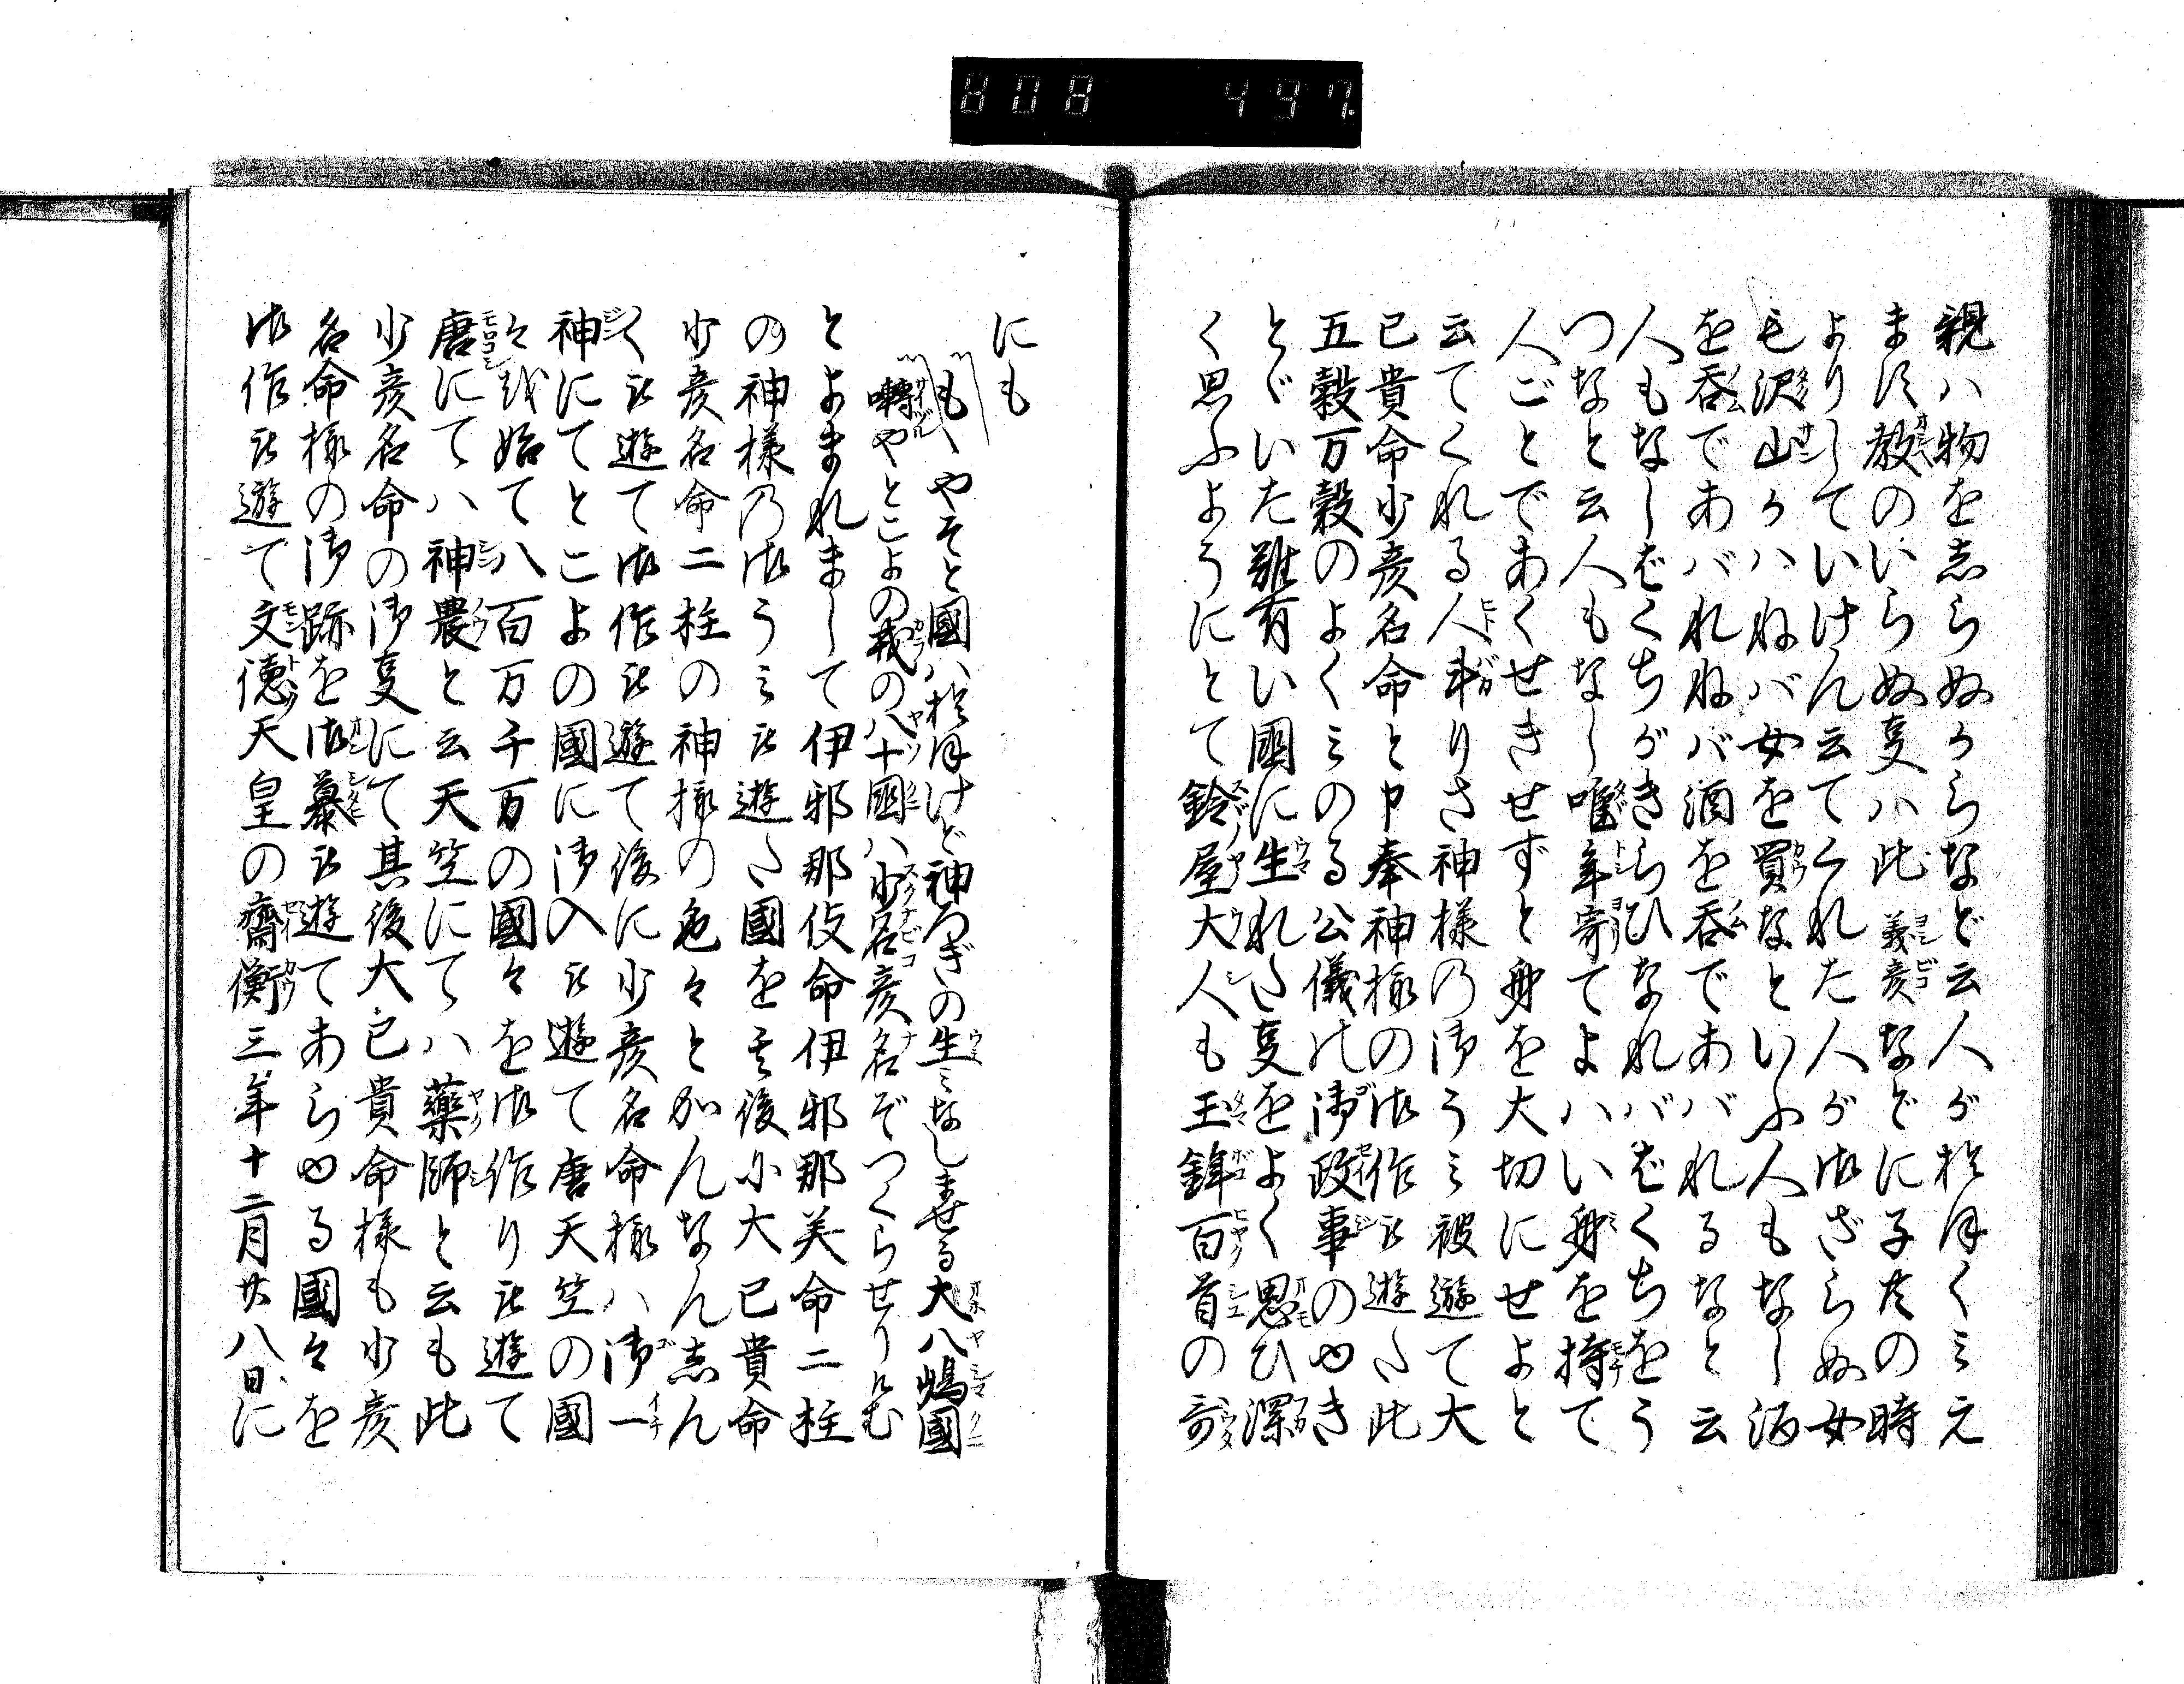 親ハ物を志らぬからなど云人が於ほくミえ
ま須教のいらぬ㕝ハ此義彦などに子共の時
よりしていけん云てくれた人が御ざらぬ女
も沢山かハねバ女を買なといふ人もなし酒
を呑であバれねバ酒を呑であバれるなと云
人もなしばくちがきらひなれバばくちをう
つなと云人もなし唯年寄てよハい身を持て
人ごとであくせきせずと身を大切にせよと
云てくれる人斗りさ神様の御うミ被遊て大
已貴命少彦名命と申奉神様の御作被遊た此
五穀万穀のよくミのる公儀の御政事のゆき
とゞいた難有い國に生れた㕝をよく思ひ深
く思ふようにとて鈴屋大人も玉鉾百首の哥
にも
もゝやそと國ハ於ほけど神ろぎの生ミなしませる大八嶋國
囀やとこよの戎の八十國ハ少名彦名ぞつくらせりけむ
とよまれまして伊邪那伎命伊邪那美命二柱
の神様の御うミ被遊た國を其後小大已貴命
少彦名命二柱の神様の色々とかんなん志ん
く被遊て御作被遊て後に少彦名命様ハ御一
神にてとこよの國に御入被遊て唐天竺の國
々越始て八百万千万の國々を御作り被遊て
唐にてハ神農と云天竺にてハ薬師と云も此
少彦名命の御㕝にて其後大已貴命様も少彦
名命様の御跡を御慕被遊てあらゆる國々を
御作被遊て文徳天皇の齋衡三年十二月廿八日に